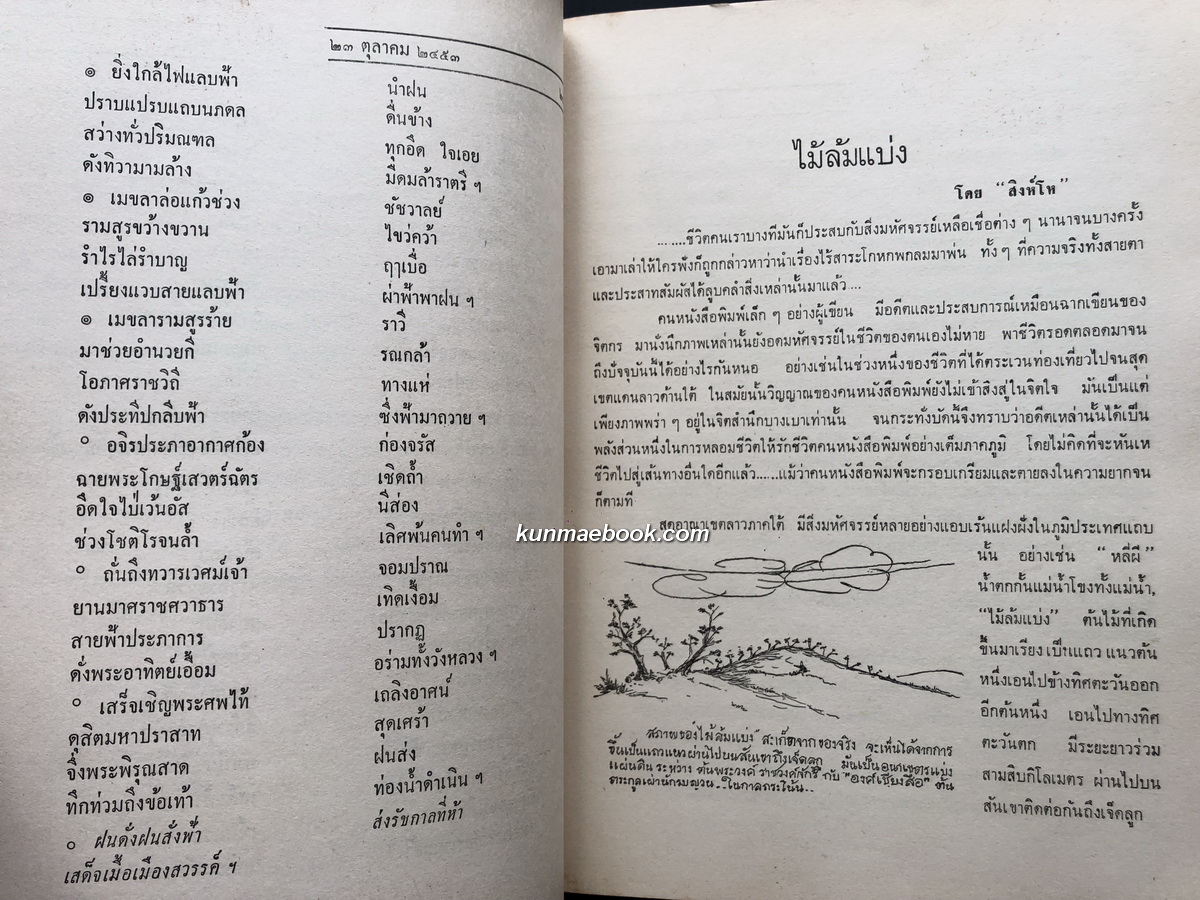 ๒๓ ตุลาคม ๒๔๕๓
๏ ยิ่งใกล้ไฟแลบฟ้า นำฝน
ปราบแปรบแถบนภดล ดื่นข้าง
สว่างทั่วปริมณฑล ทุกอึด ใจเอย
ดังทิวามามล้าง มืดมล้าราตรี ฯ
๏ เมขลาล่อแก้วช่วง ชัชวาลย์
รามสูรขว้างขวาน ไขว่คว้า
รำไรไล่รำบาญ ฤๅเบื่อ
เปรี้ยงแวบสายแลบฟ้า ผ่าฟ้าพาฝน ฯ
๏ เมขลารามสูรร้าย ราวี
มาช่วยอำนวยกี รณกล้า
โอภาศราชวิถี ทางแห่
ดังประทีปกลีบฟ้า ซึ่งฟ้ามาถวาย ฯ
๐ อจิรประภาอากาศก้อง ก่องจรัส
ฉายพระโกษฐ์เสวตร์ฉัตร เชิดถ้ำ
อึดใจไป่เว้นอัส นีส่อง
ช่วงโชติโรจนล้ำ เลิศพ้นคนทำ ฯ
๐ ถั่นถึงทวารเวศม์เจ้า จอมปราณ
ยานมาศราชศวาธาร เทิดเงื้อม
สายฟ้าประภาการ ปรากฏ
ดั่งพระอาทิตย์เอื้อม อร่ามทั้งวังหลวง ฯ
๐ เสร็จเชิญพระศพไท้ เถลิงอาศน์
ดุสิตมหาปราสาท สุดเศร้า
จึ่งพระพิรุณสาด ฝนส่ง
ทึกท่วมถึงข้อเท้า ท่องน้ำดำเนิน ฯ
๐ ฝนดั่งฝนสั่งฟ้า ส่งรัชกาลที่ห้า
เสด็จเมื้อเมืองสวรรค์ ฯ
ไม้ล้มแบ่ง
โดย "สิงห์โห"
.......ชีวิตคนเราบางทีมันก็ประสบกับสิ่งมหัศจรรย์เหลือเชื่อต่าง ๆ นานาจนบางครั้ง
เอามาเล่าให้ใครฟังก็ถูกกล่าวหาว่านำเรื่องไร้สาระโกหกพกลมมาพ่น ทั้ง ๆ ที่ความจริงทั้งสายตา
และประสาทสัมผัสได้ลูบคลำสิ่งเหล่านั้นมาแล้ว....
คนหนังสือพิมพ์เล็ก ๆ อย่างผู้เขียน มีอดีตและประสบการณ์เหมือนฉากเขียนของ
จิตกร มานั่งนึกภาพเหล่านั้นยังอดมหัศจรรย์ในชีวิตของตนเองไม่หาย พาชีวิตรอดตลอดมาจน
ถึงปัจจุบันนี้ได้อย่างไรกันหนอ อย่างเช่นในช่วงหนึ่งของชีวิตที่ได้ตระเวนท่องเที่ยวไปจนสุด
เขตแดนลาวด้านใต้ ในสมัยนั้นวิญญาณของคนหนังสือพิมพ์ยังไม่เข้าสิงสู่ในจิตใจ มันเป็นแต่
เพียงภาพพร่า ๆ อยู่ในจิตสำนึกบางเบาเท่านั้น จนกระทั่งบัดนี้จึงทราบว่าอดีตเหล่านั้นได้เป็น
พลังส่วนหนึ่งในการหลอมชีวิตให้รักชีวิตคนหนังสือพิมพ์อย่างเต็มภาคภูมิ โดยไม่คิดที่จะหันเห
ชีวิตไปสู่เส้นทางอื่นใดอีกแล้ว......แม้ว่าคนหนังสือพิมพ์จะกรอบเกรียมและตายลงในความยากจน
ก็ตามที
สุดอาณาเขตลาวภาคใต้ มีสิ่งมหัศจรรย์หลายอย่างแอบเร้นแฝงฝังในภูมิประเทศแถบ
นั้น อย่างเช่น "หลี่ผี"
น้ำตกกั้นแม่น้ำโขงทั้งแม่น้ำ,
"ไม้ล้มแบ่ง" ต้นไม้ที่เกิด
ขึ้นมาเรียงเป็นแถว แนวต้น
หนึ่งเอนไปข้างทิศตะวันออก
อีกต้นหนึ่ง เอนไปทางทิศ
ตะวันตก มีระยะยาวร่วม
สามสิบกิโลเมตร ผ่านไปบน
สันเขาติดต่อกันถึงเจ็ดลูก
สภาพของไม้ล้มแบ่ง สะเก็ตจากของจริง จะเห็นได้จากการ
ขึ้นเป็นแถวแนวผ่านไปบนสันเขาถึงเจ็ดลูก มันเป็นอนาเขตรแบ่ง
แผ่นดิน ระหว่าง ต้นพระวงศ์ ราชวงศ์ศักรี กับ "องค์เชียงสือ" ต้น
ตระกูลเผ่านักรบญวน ..ในกาลกระโน้น..
kunmaebook.com